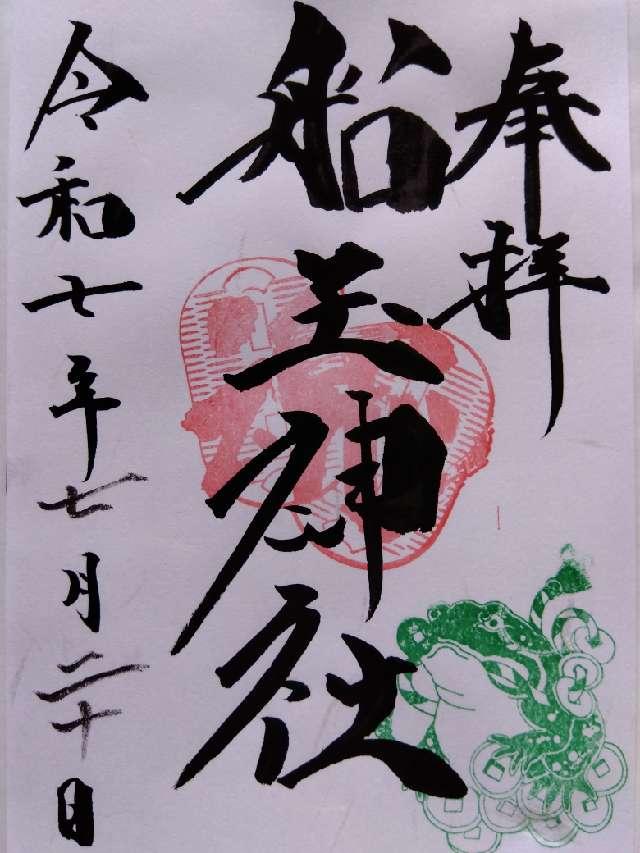 奉拝
船玉神社
令和七年七月二十日